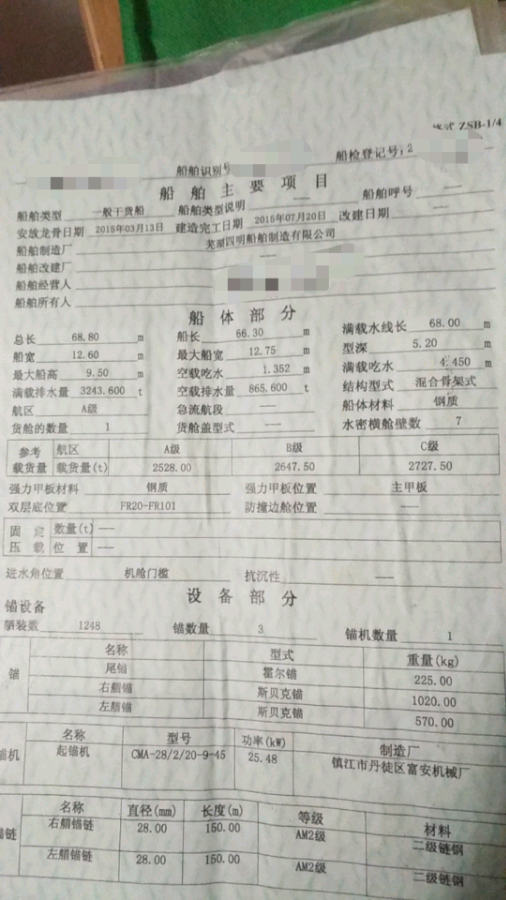 格式 ZSB-1/4
船舶识别号 船检登记号：2
船舶主要项目
船舶类型 一般干货船 船舶类型说明 —— 船舶呼号 ——
安放龙骨日期 2015年03月13日 建造完工日期 2015年07月20日 改建日期 ——
船舶制造厂 芜湖四明船舶制造有限公司
船舶改建厂 ——
船舶经营人
船舶所有人
船体部分
总长 68.80 m 船长 66.30 m 满载水线长 68.00 m
船宽 12.60 m 最大船宽 12.75 m 型深 5.20 m
最大船高 9.50 m 空载吃水 1.352 m 满载吃水 4.450 m
满载排水量 3243.600 t 空载排水量 865.600 t 结构型式 混合骨架式
航区 A级 急流航段 —— 船体材料 钢质
货舱的数量 1 货舱盖型式 —— 水密横舱壁数 7
参考 航区 A级 B级 C级
载货量 载货量(t) 2528.00 2647.50 2727.50
强力甲板材料 钢质 强力甲板位置 主甲板
双层底位置 FR20-FR101 防撞边舱位置 ——
固定 数量(t) ——
压载 位置 ——
进水角位置 机舱门槛 抗沉性 ——
设备部分
锚设备
舾装数 1248 锚数量 3 锚机数量 1
锚 名称 型式 重量(kg)
尾锚 霍尔锚 225.00
右艏锚 斯贝克锚 1020.00
左艏锚 斯贝克锚 570.00
锚机 名称 型号 功率(kW) 制造厂
起锚机 CMA-28/2/20-9-45 25.48 镇江市丹徒区富安机械厂
锚链 名称 直径(mm) 长度(m) 等级 材料
右艏锚链 28.00 150.00 AM2级 二级链钢
左艏锚链 28.00 150.00 AM2级 二级链钢